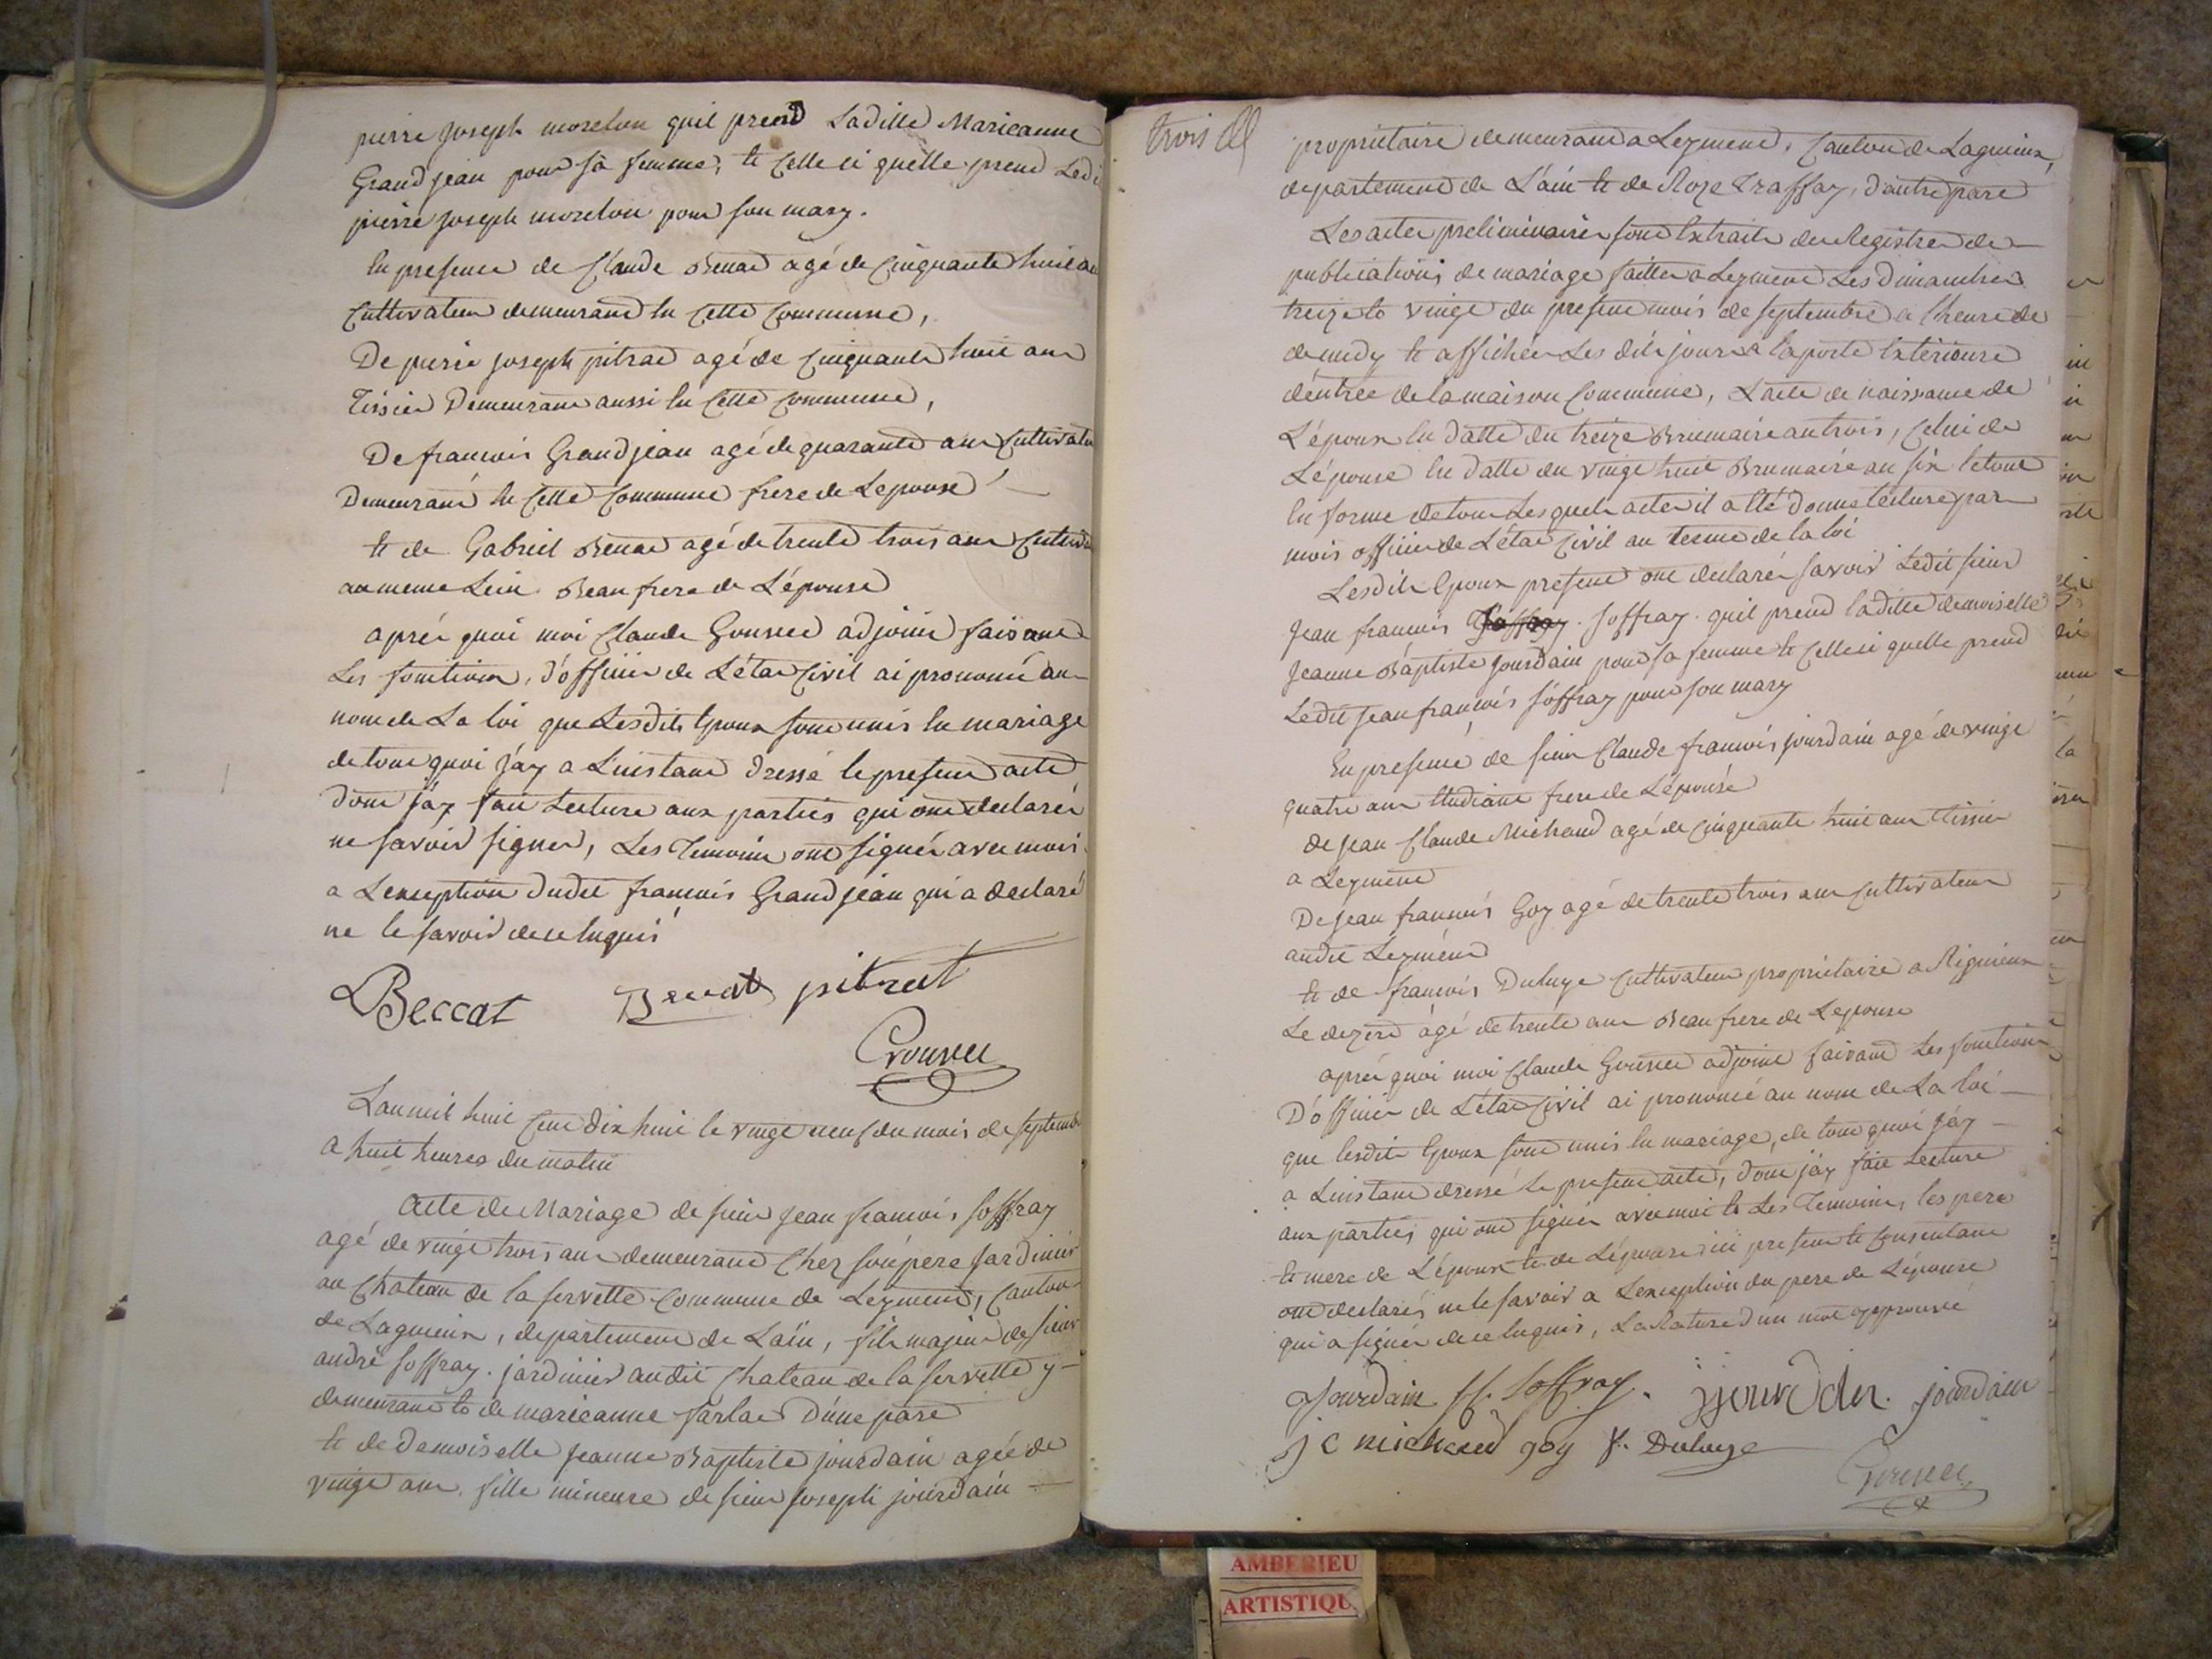 pierre joseph moreton quil prend Laditte Marieanne
Grandjean pour sa femme, et Celle ci quelle prend Ledi
pierre joseph moreton pour son mary.
En presence de Claude Benat agé de Cinquante huit an
Cultivateur demeurant En Cette Commune,
De pierre joseph pitrat agé de Cinquante huit ans
Tissier Demeurant aussi En Cette Commune,
De francois Grandjean agé de quarante ans Cultivate
Demeurant En Cette Commune frere de Lepouse
et de Gabriel Benat agé de trente trois ans Cultiva
au meme Lieu Beau frere de L'épouse
aprés quoi moi Claude adjoint faisant
Les fonctions, d'officier de L'état Civil ai prononcé au
nom de La loi que Lesdits Epoux sont unis En mariage
de tout quoi j'áy a Linstant dressé le present acte
dont j'áy fait Lecture aux parties qui ont declarés
ne savoir signer, Les Temoins ont signés avec moi
a Lexception dudit francois Grandjean qui a declaré
ne le savoir de ce Enquis
Beccat Benat pitrat
Lan mil huit Cent dix huit le vingt neuf du mois de septembr
a huit heures du matin
Acte de Mariage de sieur jean francois soffray
agé de vingt trois ans demeurant Chez son pere jardinier
au Chateau de la servette Commune de Leyment, Canton
de Lagnieux, departement de Lain, fils majeur de sieur
andré soffray. jardinier audit Chateau de la servette y
demeurant et de marieanne sarlat D'une part
et de demoiselle jeanne Baptiste jourdain agée de
vingt ans. fille mineure de sieur joseph jourdain
trois
propriétaire demeurant a Leyment, Canton de Lagnieux,
departement de L'ain et de Roze Traffay, d'autre part
Les actes preliminaires sont Extraits des Registres de
publications de mariage faittes a Leyment Les dimanches
treize et vingt du present mois de septembre a lheure de
de midy et affichées Les dits jours a la porte Extérieure
d'entrée de la maison Commune, L'acte de naissance de
L'époux En datte du treize Brumaire an trois, Celui de
L'épouse En datte du vingt huit Brumaire an six le tout
En forme de tous Lesquels actes il a Eté donné Lecture par
moi officier de L'état Civil au terme de la loi
Lesdits Epoux present ont declarés savoir Ledit sieur
jean francois soffray. quil prend laditte demoiselle
jeanne Baptiste jourdain pour sa femme et Celle ci quelle prend
Ledit jean francois soffray pour son mary
En presence de sieur Claude francois jourdain agé de vingt
quatre ans Etudiant frere de L'épouse
de jean Claude Michaud agé de cinquante huit ans Tissier
a Leyment
De jean francois Goy agé de trente trois ans Cultivateur
audit Leyment
et de francois Duluge Cultivateur propriétaire a Rignieux
Le dezert âgé de trente ans Beau frere de Lepouse
aprés quoi moi Claude adjoint faisant Les fonctions
D'officier de L'état Civil ai prononcé au nom de La loi
que lesdits Epoux sont unis En mariage, de tout quoi j'áy
a Linstant dressé Le present acte, dont j'áy fait Lecture
aux parties qui ont signés avec moi et Les Temoins, les pere
et mere de L'époux et de Lépouse ici present et Consentant
ont declarés ne le savoir a Lexception du pere de L'épouse
qui a signé de ce Enquis, La Rature d'un mot approuvée
Jourdain jf. Soffray. jourdin. jourdain
j C michaud goy f. Duluge
AMBERIEU
ARTISTIQU